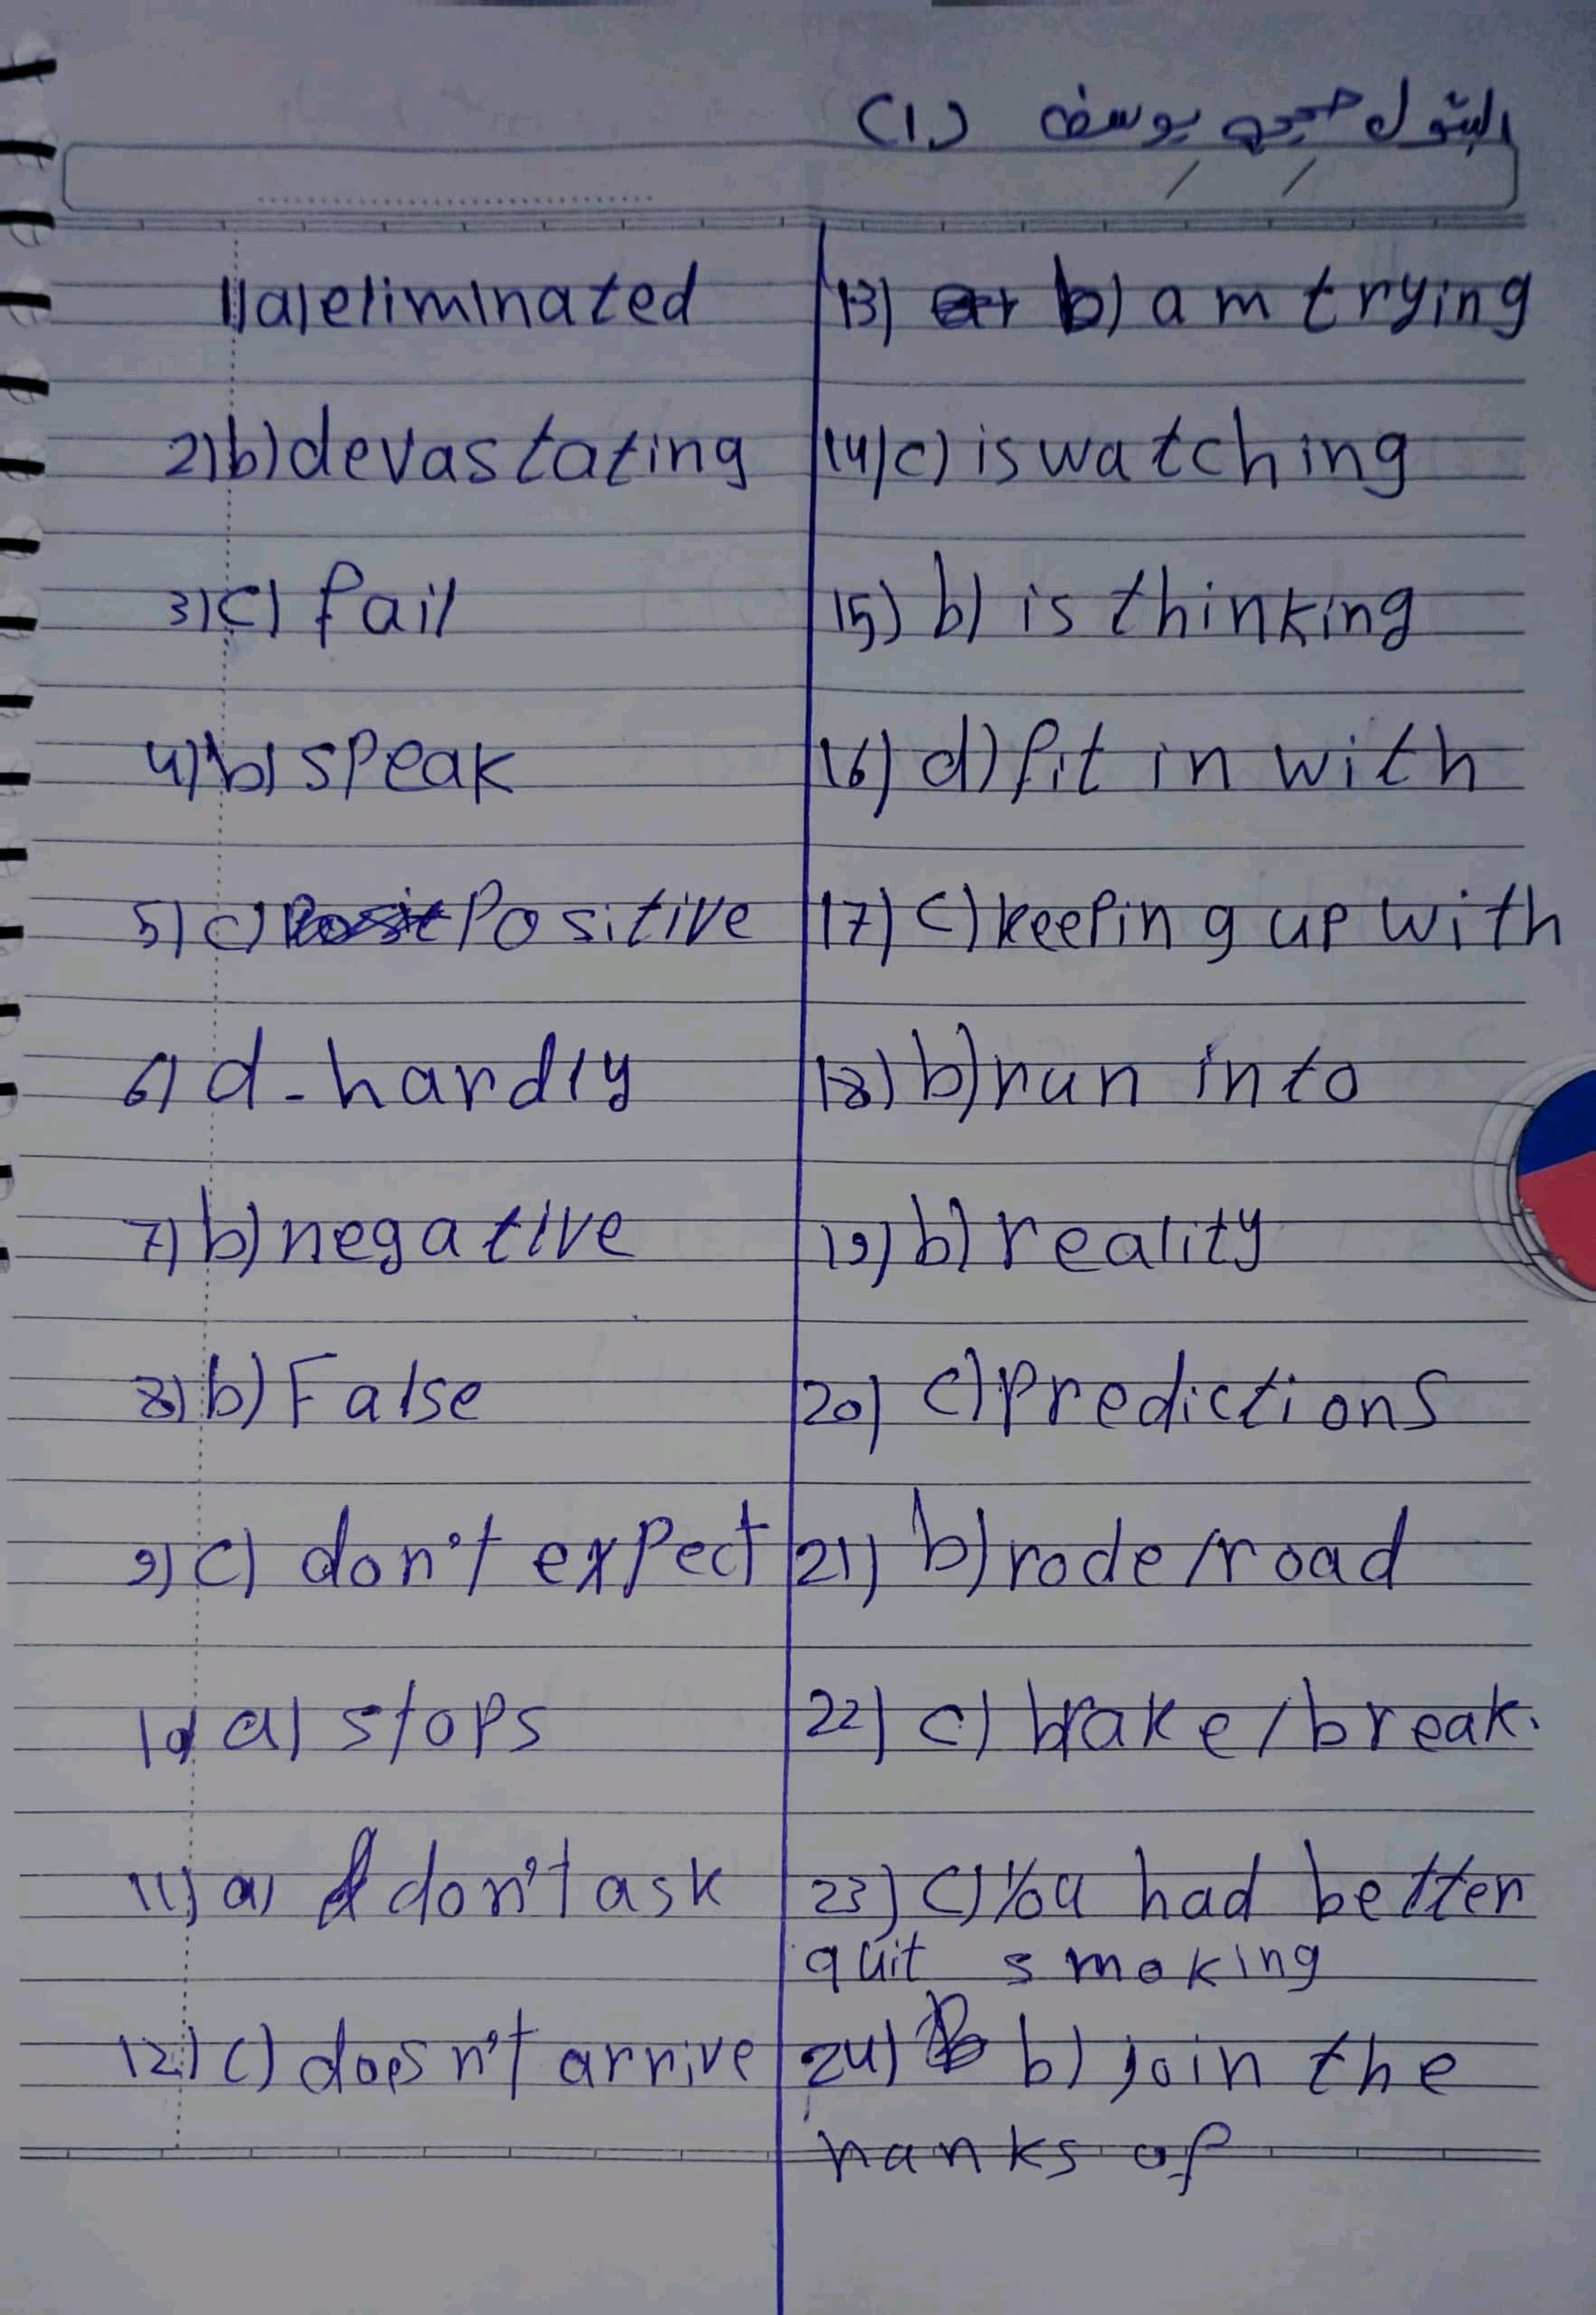 البتول حجيج يوسف (1)
1) a) eliminated
2) b) devastating
3) c) fail
4) b) speak
5) c) Positive
6) d - hardly
7) b) negative
8) b) False
9) c) don't expect
10) a) stops
11) a) don't ask
12) c) doesn't arrive
13) b) am trying
14) c) is watching
15) b) is thinking
16) d) fit in with
17) c) keeping up with
18) b) run into
19) b) reality
20) c) Predictions
21) b) rode/road
22) c) brake/break.
23) c) You had better
quit smoking
24) b) join the
hanks of